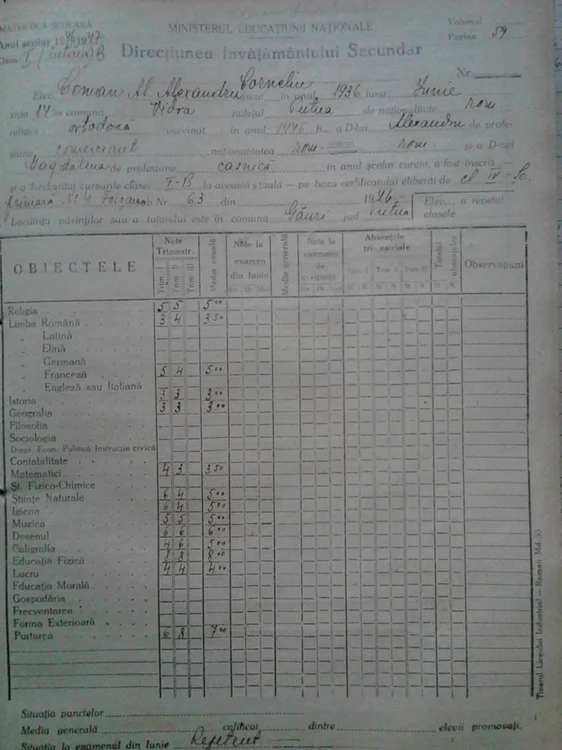 MATRICOLA ŞCOLARĂ
MINISTERUL EDUCAŢIUNII NAŢIONALE
Volumul
Anul şcolar 1946/1947
Pagina 59
Direcţiunea Învăţământului Secundar
Clasa I B
Nr.
Elev Coman Al. Alexandru Corneliu născut în anul 1936 luna Iunie
ziua 14 în comuna Vidra judeţul Putna de naţionalitate rom
religia ortodoxă în anul 1946 a D-lui Alexandru de profe-
siune comerciant naţionalitatea rom. rom şi a D-nei
Magdalena de profesiune casnică în anul şcolar curent, a fost înscris
şi a frecventat cursurile clasei I-B la această şcoală — pe baza certificatului eliberat de
primară No 4 Focşani sub Nr. 63 din 1946 Elev... a repetat
Locuinţa părinţilor sau a tutorelui este în comuna Găuri jud Putna clasele
OBIECTELE
Note Trimestr.
Trim I
Trim II
Trim III
Media anuală
Note la examen din Iunie
Media generală
Note la examenul de
Absenţele trimestriale
Trim. I
Trim. II
Trim. III
Totalul absenţelor
Observaţiuni
Religia 5 5 5⁰⁰
Limba Română 3 4 3 50
„ Latină
„ Elină
„ Germană
„ Franceză 5 4 5⁰⁰
„ Engleză sau Italiană
Istoria 3 3 3⁰⁰
Geografia 3 3 3⁰⁰
Filosofia
Sociologia
Drept Econ. Politică Instrucţia civică
Contabilitate
Matematici 4 3 3 50
Şt. Fizico-Chimice
Ştiinţe Naturale 6 4 5⁰⁰
Igiena 6 4 5⁰⁰
Muzica 5 5 5⁰⁰
Desenul 6 6 6⁰⁰
Caligrafia 4 6 5⁰⁰
Educaţia Fizică 8 8 8⁰⁰
Lucru 4 4 4⁰⁰
Educaţia Morală
Gospodăria
Frecventarea
Forma Exterioară
Purtarea 6 8 7⁰⁰
Tiparul Liceului Industrial – Roman Md. 55
Situaţia punctelor
Media generală calificat dintre elevii promovaţi.
Situaţia la examenul din Iunie Repetent